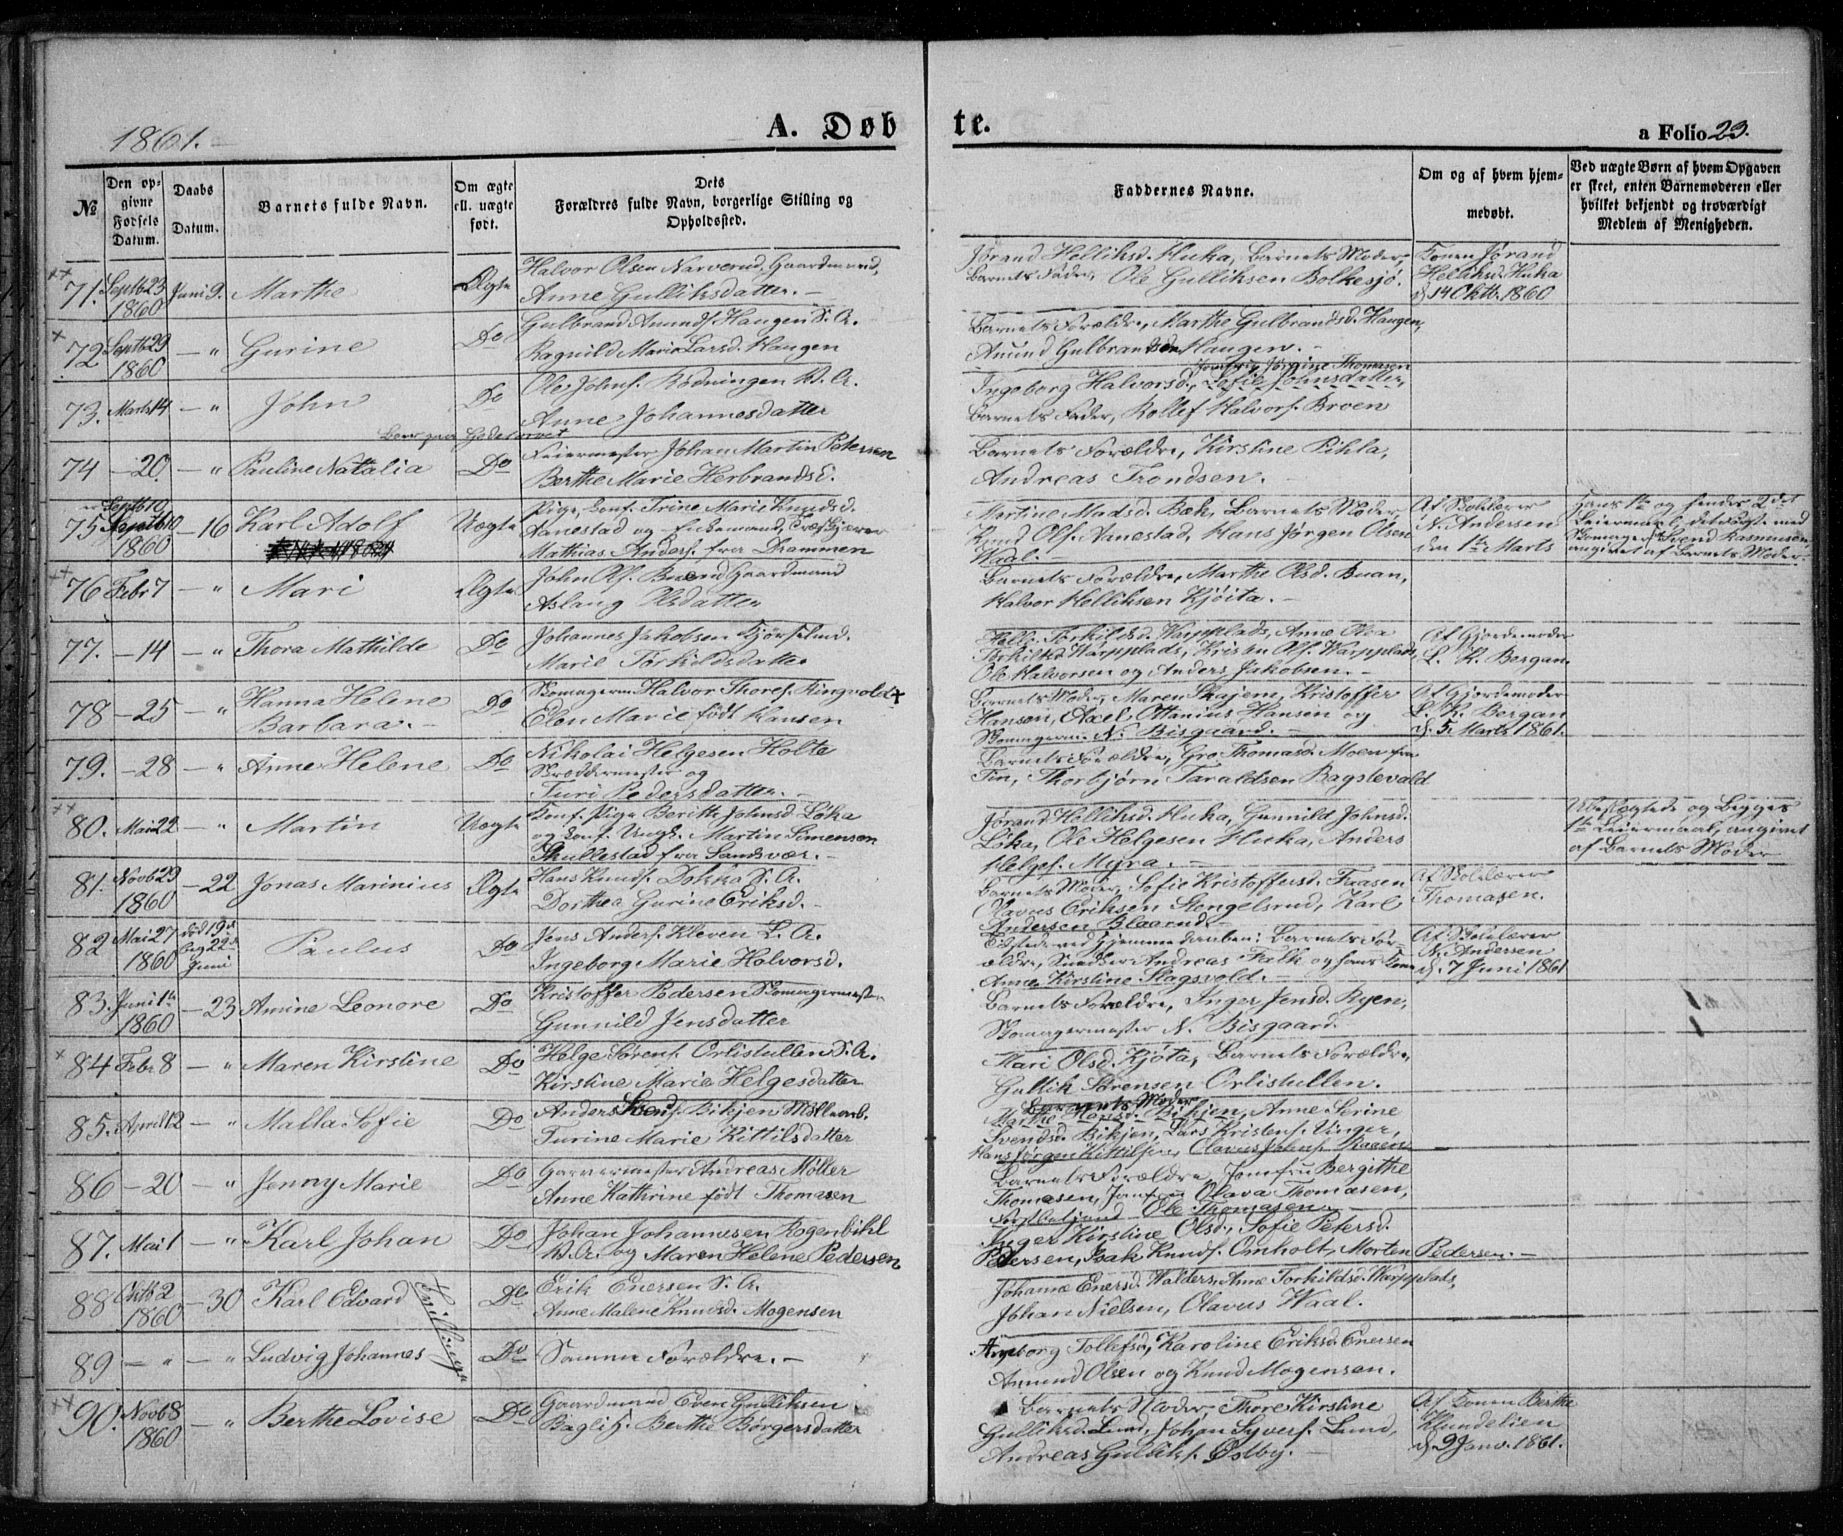 1861.
A. Døbte.
a Folio 23.
№
Den opgivne Fødsels Datum.
Daabs Datum.
Barnets fulde Navn.
Om ægte ell. uægte født.
Dets Forældres fulde Navn, borgerlige Stilling og Opholdssted.
Faddernes Navne.
Om og af hvem hjemmedøbt.
Ved uægte Børn af hvem Opgaven er skeet, enten Barnemoderen eller hvilket bekjendt og troværdigt Medlem af Menigheden.
71. Septb 23 1860 Juni 9. Marthe Ægte
Halvor Olsen Narverud, Gaardmand,
Anne Gulliksdatter. –
Jørand Helliksd. Huka, Barnets Moder,
Barnets Fader, Ole Gulliksen Bolkesjø.
Konen Jørand
Helliksd. Huka
d. 14 Oktb. 1860
72 Septb 29 1860 – " Gurine Do
Gulbrand Amundf. Haugen S. A.
Ragnild Marie Larsd. Haugen
Barnets Forældre, Marthe Gulbrandsd. Haugen,
Amund Gulbrandsen Haugen. –
73. Marts 14 – " John Do
Ole Johnf. Rodningen B. A.
Anne Johannesdatter
Jomfru Jørgine Thomasen
Ingeborg Halvorsd., Sofie Johnsdatter,
Barnets Fader, Rollef Halvorf. Broen
74 – 20. – " Pauline Natalia Do
Feiermester Johan Martin Petersen
Berthe Marie Herbrandsd.
Barnets Forældre, Kirstine Pihla,
Andreas Trondsen.
75 Septb 10 1860 – 16 Karl Adolf Uægte
Pige, Konf. Trine Marie Knudsd.
Aanestad og Enkemand,
Mathias Anderf. fra Drammen
Martine Madsd. Bæk, Barnets Moder,
Knud Olf. Aanestad, Hans Jørgen Olsen
Waal.
Af Skolelærer
N. Andersen
den 1ste Marts
Hans 1ste og hendes 2det
Leiermaal, det første med
Skomager Svend Rasmussen
angivet af Barnets Moder
76 Febr 7 – " Mari Ægte
John Olf. Buan, Gaardmand
Aslaug Olsdatter
Barnets Forældre, Marthe Olsd. Buan,
Halvor Helliksen Kjøita. –
77. – 14 – " Thora Mathilde Do
Johannes Jakobsen
Marie Torkildsdatter
Torkildsd. Warpplads, Anne Olea
Torkildsd Warpplads, Kristen Olf. Warpplads,
Ole Halvorsen og Anders Jakobsen. –
Af Gjordemoder
L. K. Bergan.
78 – 25 – " Hanna Helene Barbara. – Do
Skomagerm. Halvor Thoref. Ringvold +
Elen Marie født Hansen
Barnets Moder, Maren Skajem, Kristoffer
Hansen, Axel Ottanius Hansen og
Skomagerm. N. Bisgaard. –
Af Gjordemoder
L. K. Bergan
d. 5 Marts 1861.
79. – 28 – " Anne Helene Do
Nikolai Helgesen Holte
Skræddermester og
Turi Pedersdatter. –
Barnets Forældre, Gro Thomasd. Moen fra
Tin, Thorbjørn Taraldsen Bagstevold
80. Mai 22 – " Martin Uægte
Konf. Pige Berith Johnsd. Løka
og Konf. Ungk. Martin Simensen
Skullestad fra Sandsvær. –
Jørand Helliksd. Huka, Gunnild Johnsd.
Løka, Ole Helgesen Huka, Anders
Helgef. Myra. –
Ubeslægtede og Begges
1ste Leiermaal, angivet
af Barnets Moder
81. Novb 29 1860 – 22 Jonas Marinius Ægte
Hans Knudf. Dokka S. A.
Dorthea Gurine Eriksd. –
Barnets Moder, Sofie Kristoffersd. Faasen
Olavus Eriksen Stengelsrud, Karl
Andersen Blaarud –
Af Skolelærer
Thomasen.
82 Mai 27 1860 død 19de beg 22de Juni Paulus Do
Jens Anderf. Kleven L. A.
Ingeborg Marie Halvorsd.
Tilstede ved Hjemmedaaben: Barnets Forældre,
Snedker Andreas Falk og hans Kone
Anne Kirstine Slagsvold. –
Af Skolelærer
N. Andersen
d. 7 Juni 1861
83. Juni 1te 1860 – 23 Amine Leonore Do
Kristoffer Pedersen Skomagermester
Gunnild Jensdatter
Barnets Forældre, Inger Jensd. Ryen,
Skomagermester N. Bisgaard.
84 Febr 8 – " Maren Kirstine Do
Helge Sørenf. Orlistullen S. A.
Kirstine Marie Helgesdatter
Mari Olsd. Kjøta, Barnets Forældre,
Gullik Sørensen Orlistullen.
85. April 12 – " Malla Sofie Do
Anders Svendf. Bikjen
Turine Marie Kittilsdatter
Barnets Moder
Marthe Hansd. Bikjen, Anne Serine
Svendsd. Bikjen, Lars Kristenf. Vinger,
Hans Jørgen Kittilsen, Olavus Johnf.
86 – 20 – " Jenny Marie Do
Garvermester Andreas Møller
Anne Kathrine født Thomasen
Barnets Forældre, Jomfru Bergithe
Thomasen, Jomfru Olava Thomasen,
Ole Thomasen. –
87. Mai 1 – " Karl Johan Do
Johan Johannesen Rogenbihl
og Maren Helene Pedersen
Inger Kirstine Olsd., Sofie Petersd.
Pedersen, Isak Knudf. Omholt, Morten Pedersen. –
88 Oktb 2 1860 – 30 Karl Edvard Do
Tvillinge
Erik Enersen S. A.
Anne Malene Knudsd. Mogensen
Johanne Enersd. Walders, Anne Torkildsd. Warpplads,
Johan Nielsen, Olavus Waal.
89 – " – " Ludvig Johannes Do
Samme Forældre. –
Ingeborg Tollefsd., Karoline Eriksd. Enersen
Amund Olsen og Knud Mogensen.
90. Novb 8 1860 – " Berthe Lovise Do
Gaardmand Even Gulliksen
Baglie, Berthe Børgersdatter
Barnets Moder, Thore Kirstine
Gulliksd. Lund, Johan Syverf. Lund,
Andreas Gullikf. Østby.
Af Konen Berthe
Klundelien
d. 9 Janv. 1861.